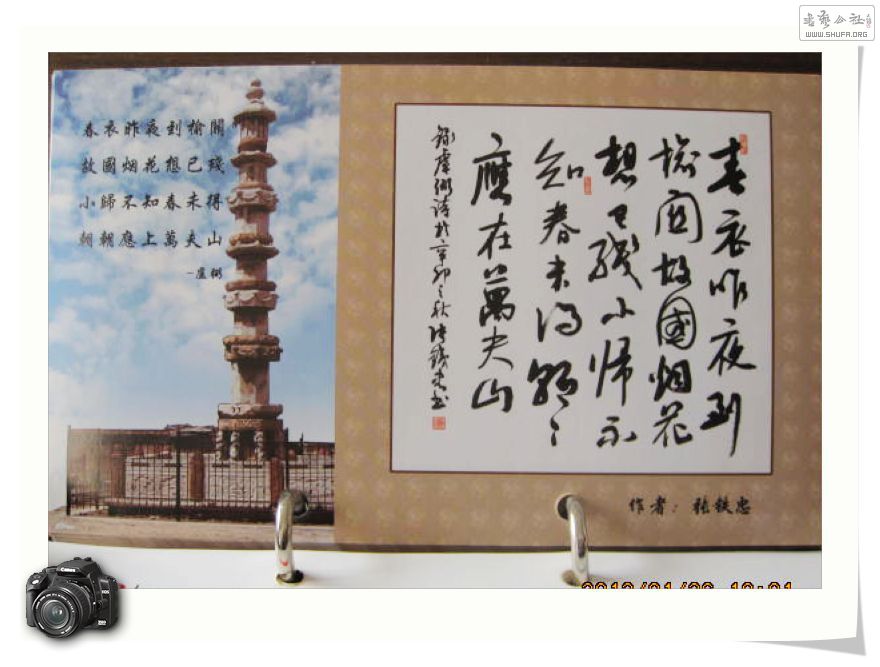 書藝公社
WWW.SHUFA.ORG
春衣昨夜到榆關
故國烟花想已殘
小歸不知春未得
朝朝應上萬夫山
-盧弼
春衣昨夜到
榆關故國烟花
想已殘小歸不
知春未得朝〻
應在萬夫山
錄盧弼詩於辛卯之秋張鐵忠書
作者：張铁忠
Canon
EOS